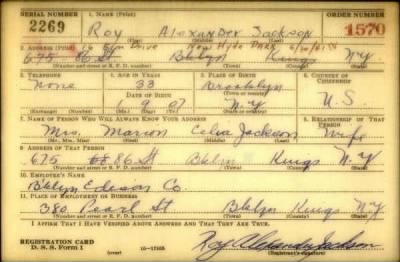 SERIAL NUMBER 1. NAME (Print) ORDER NUMBER
2269 Roy Alexander Jackson 1570
(First) (Middle) (Last)
2. ADDRESS (Print) 16 Elm Drive New Hyde Park
675 86 St Bklyn Kings N.Y.
(Number and street or R. F. D. number) (Town) (County) (State)
3. TELEPHONE 4. AGE IN YEARS 5. PLACE OF BIRTH 6. COUNTRY OF CITIZENSHIP
None 33 Brooklyn
DATE OF BIRTH (Town or county)
1 9 07 N.Y U.S.
(Exchange) (Number) (Mo.) (Day) (Yr.) (State or country)
7. NAME OF PERSON WHO WILL ALWAYS KNOW YOUR ADDRESS 8. RELATIONSHIP OF THAT PERSON
Mrs. Marion Celia Jackson Wife
(Mr., Mrs., Miss) (First) (Middle) (Last)
9. ADDRESS OF THAT PERSON
675 86 St Bklyn Kings N.Y
(Number and street or R. F. D. number) (Town) (County) (State)
10. EMPLOYER'S NAME
B'klyn Edison Co.
11. PLACE OF EMPLOYMENT OR BUSINESS
380 Pearl St Bklyn Kings NY
(Number and street or R. F. D. number) (Town) (County) (State)
I AFFIRM THAT I HAVE VERIFIED ABOVE ANSWERS AND THAT THEY ARE TRUE.
REGISTRATION CARD
D. S. S. FORM 1 (over) 16-17105 Roy Alexander Jackson
(Registrant's signature)